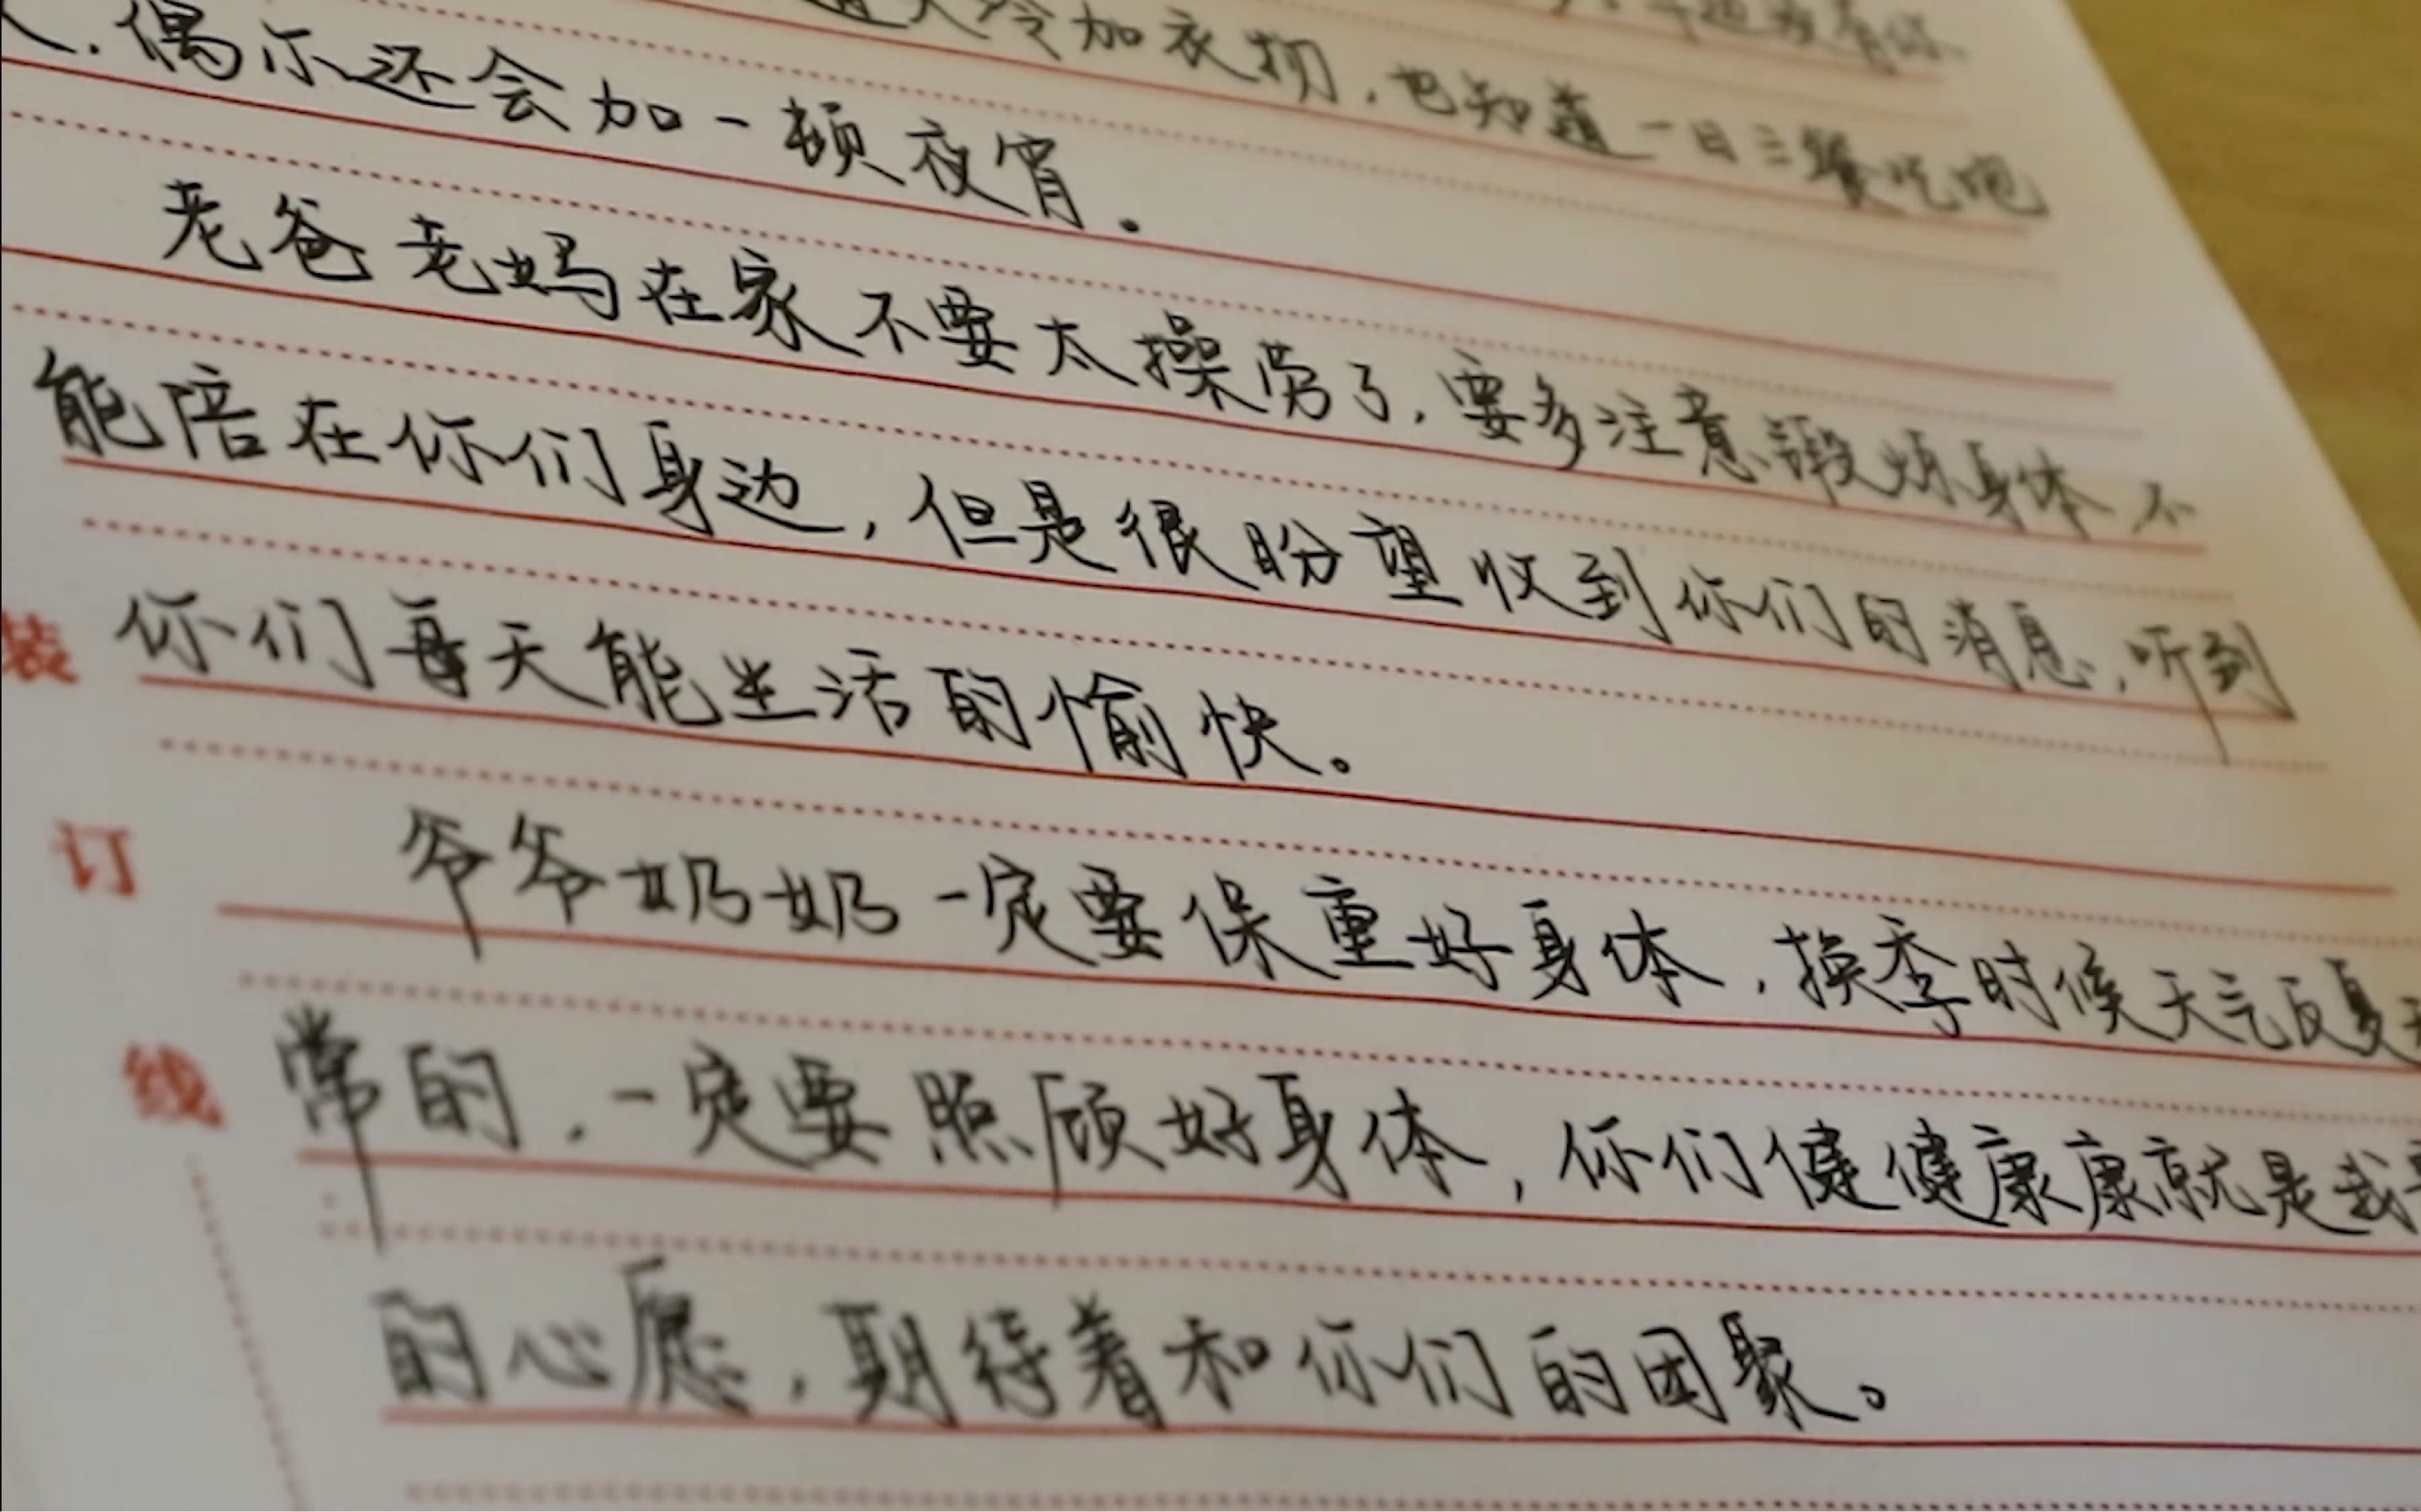 天冷加衣物，也知道一日三餐吃饱
，偶尔还会加一顿夜宵。
老爸老妈在家不要太操劳了，要多注意锻炼身体，不
能陪在你们身边，但是很盼望收到你们的消息，听到
装 你们每天能生活的愉快。
订
爷爷奶奶一定要保重好身体，换季时候天气反复
线 常的，一定要照顾好身体，你们健健康康就是我
的心愿，期待着和你们的团聚。